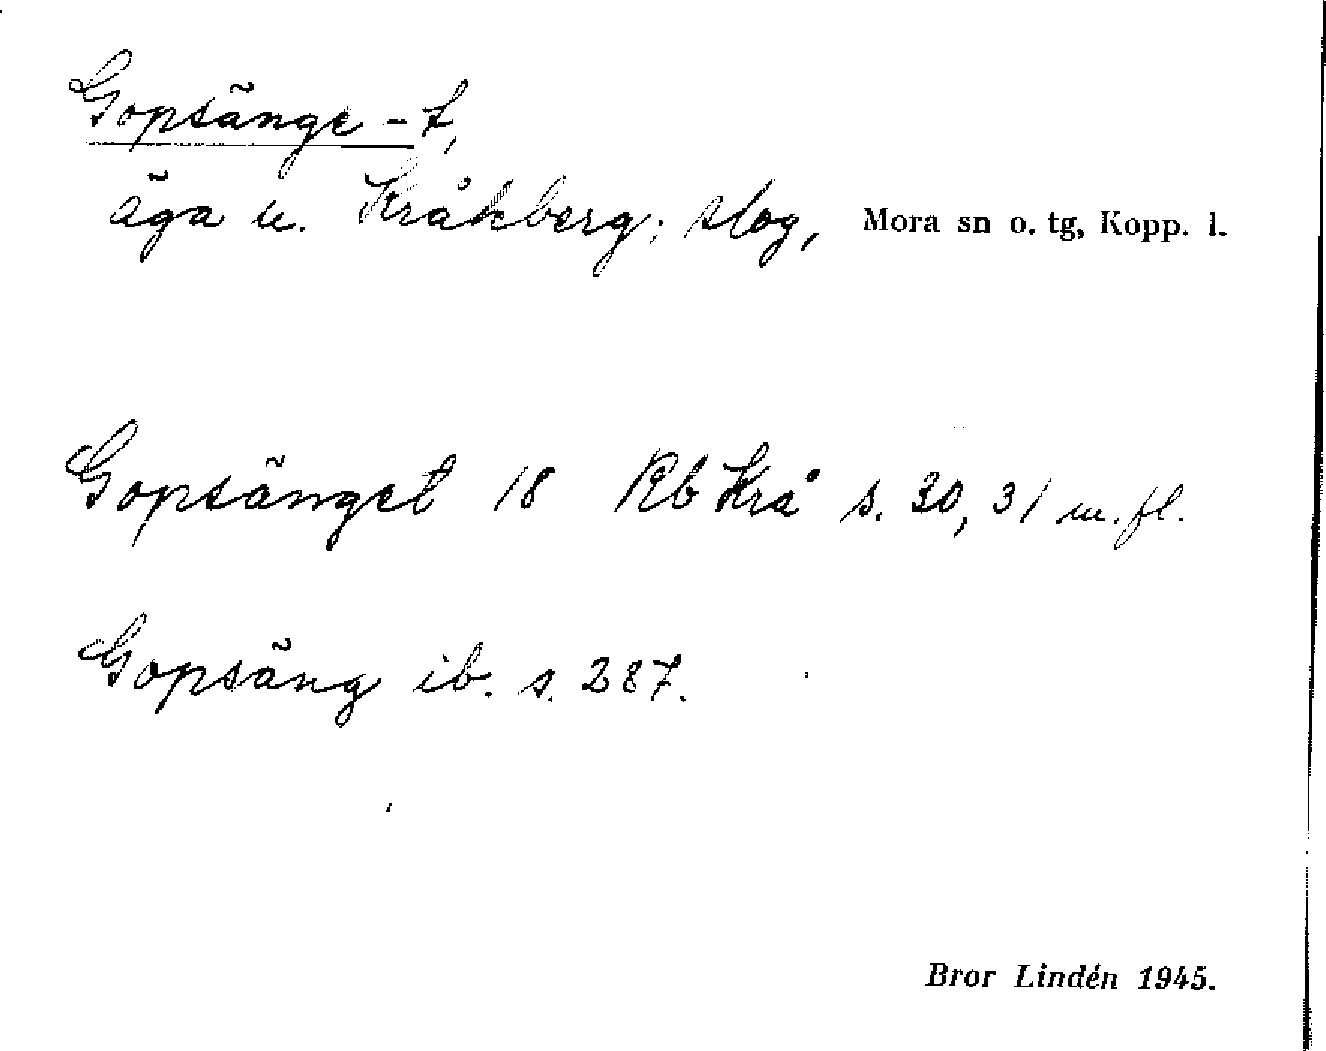 Gopsänge -t,
äga u. Kråkberg; slog, Mora sn o. tg, Kopp. l.
Gopsänget 18 Rb Krå s. 30, 31 m. fl.
Gopsäng ib. s. 287.
Bror Lindén 1945.